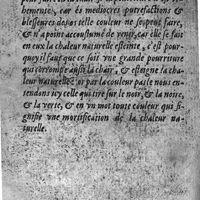 hemente, car és mediocres putrefactions &
blesseures de ars telle couleur ne se peut faire,
& n'a point accoustumé de venir, car elle se fait
en eux la chaleur naturelle esteinte, c'est pour-
quoy il faut que ce soit vne grande pourriture
qui corrompe aussi la chair, & esteigne la cha-
leur naturelle: or par la couleur paste nous en-
tendons icy celle qui tire sur le noir, & la noire,
& la verte, & en vn mot toute couleur qui si-
gnifie vne mortification de la chaleur na-
turelle.